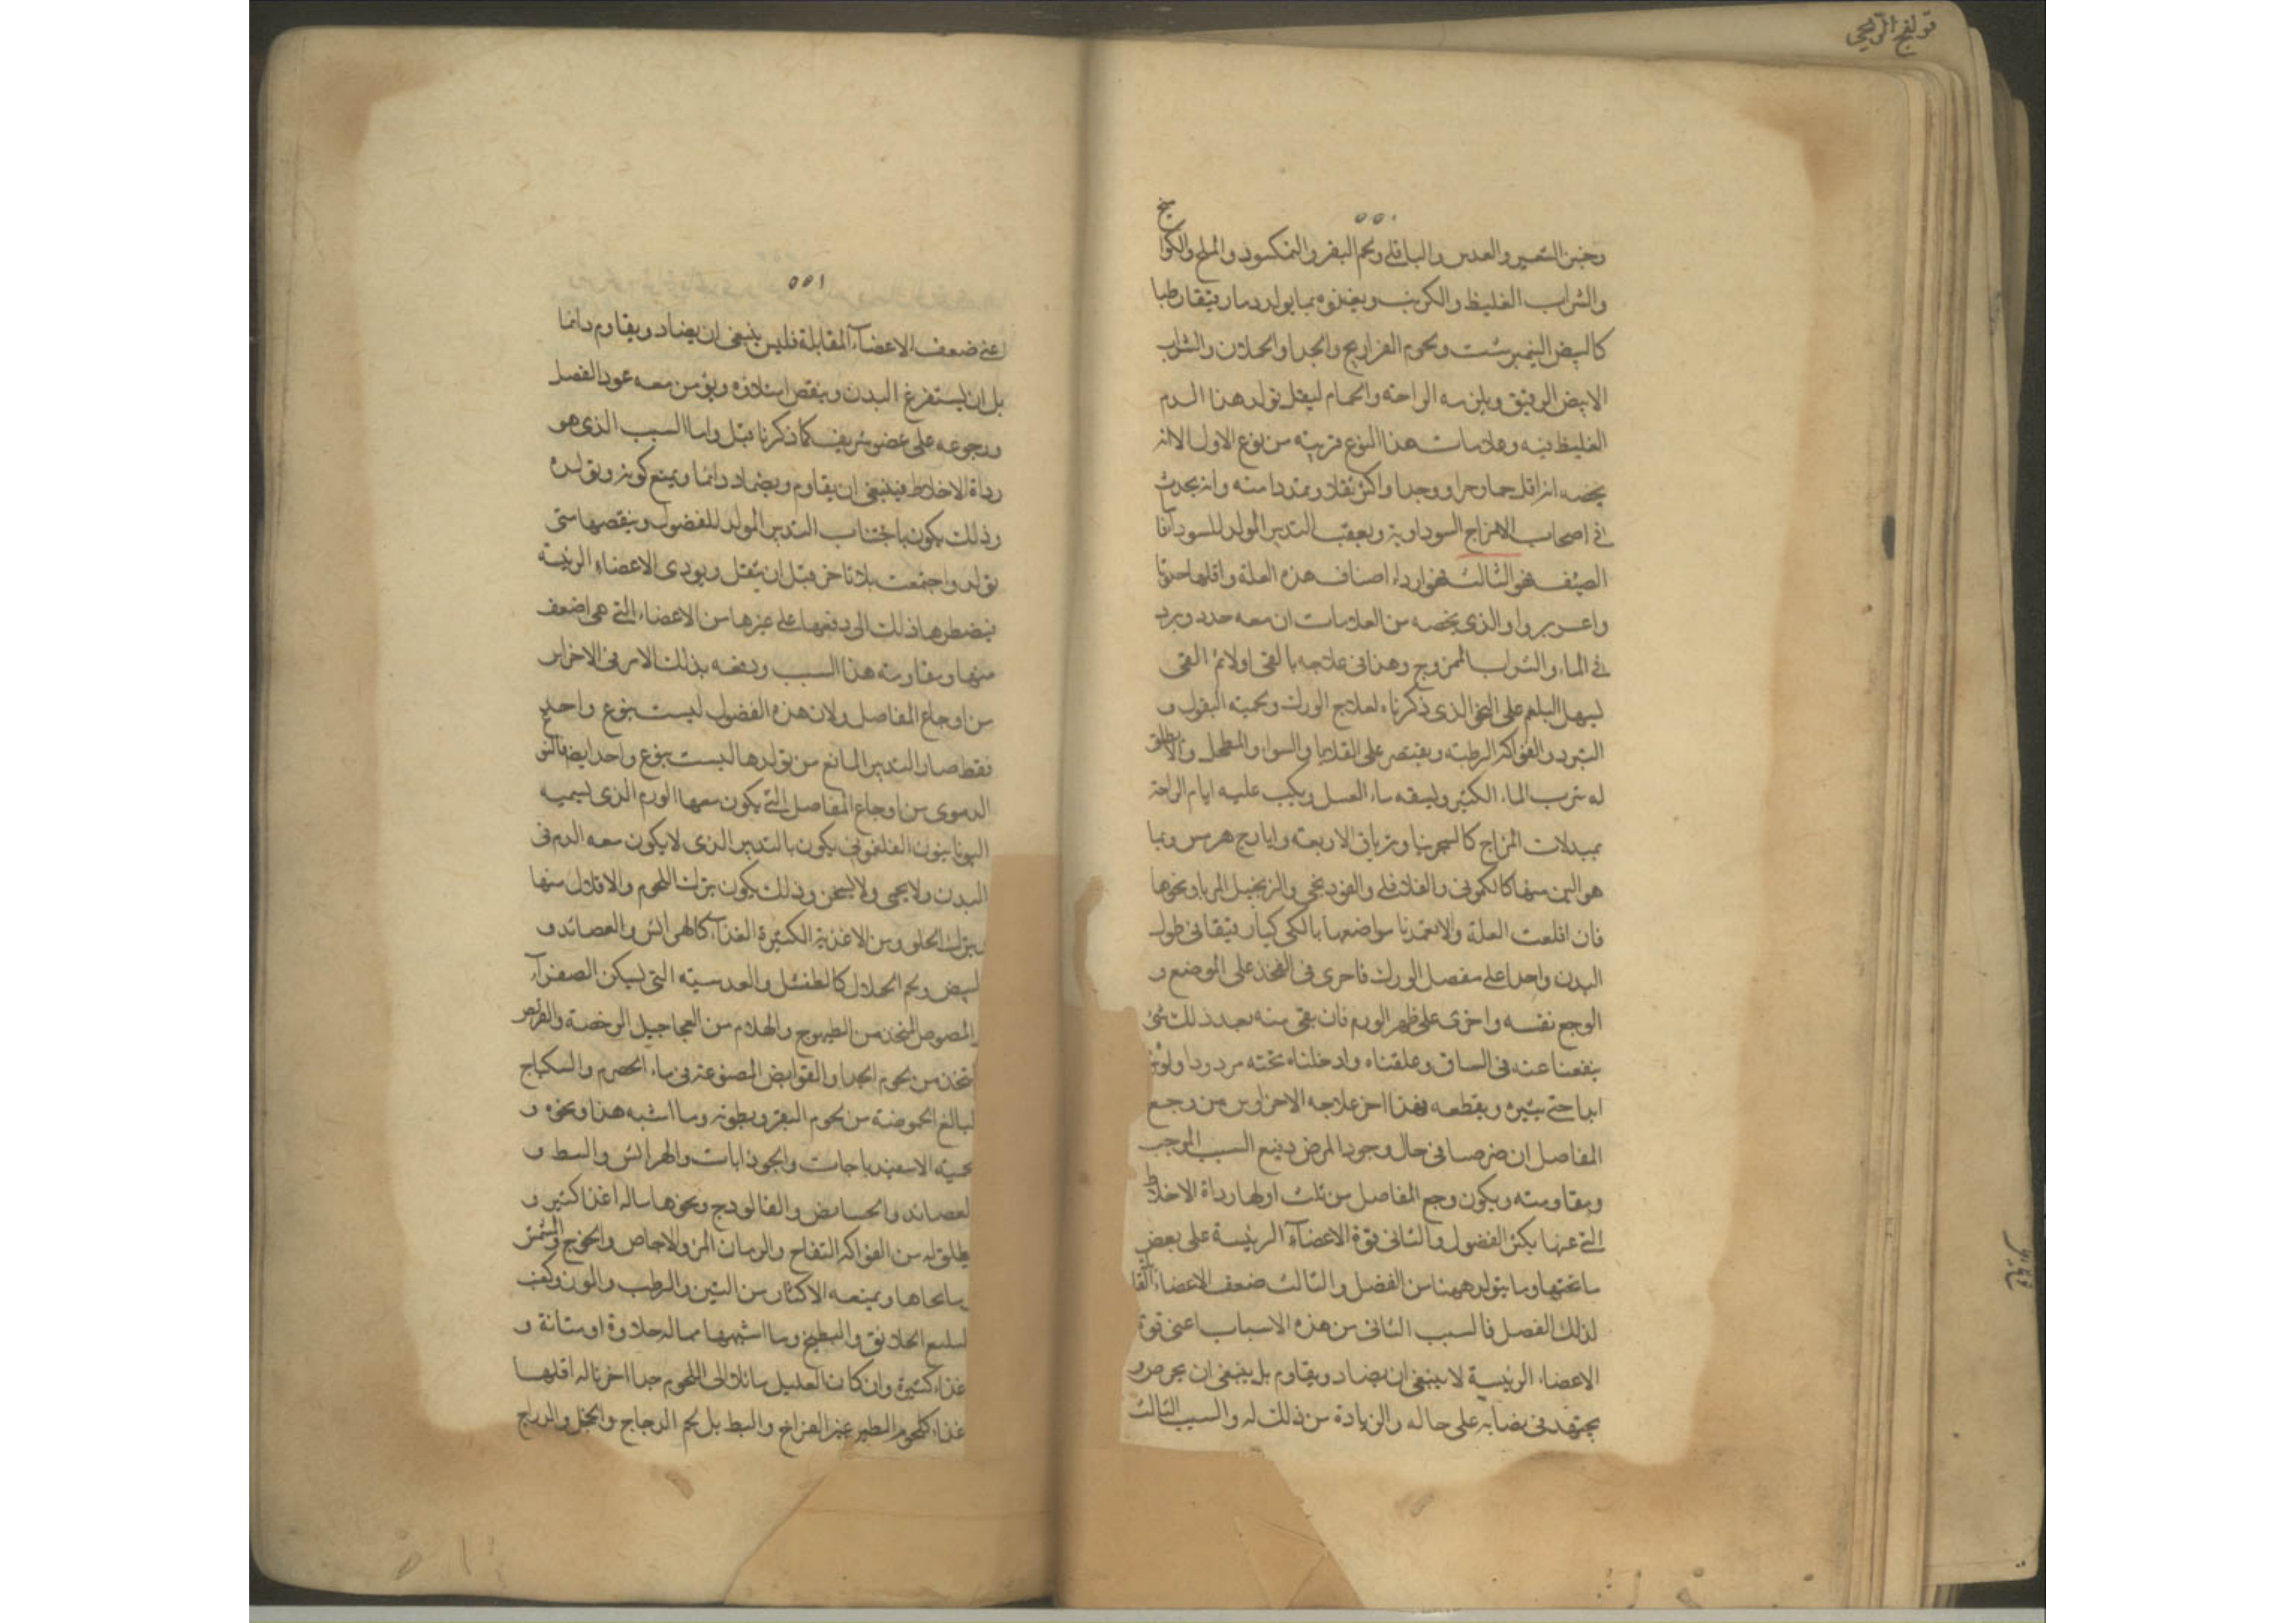 ٥٥٠
وخبز الشعير والعدس والباقلى ولحم البقر والنمكسود والمالح والكوامخ
والشراب الغليظ والكرنب ويغذوه بما يولد دما رقيقا رطبا
كالبيض النيمبرشت ولحوم الفراريج والجدا والحملان والشراب
الابيض الرقيق ويلزمه الراحة والحمام ليقل تولد هذا الدم
الغليظ فيه وعلامات هذا النوع قريبة من نوع الاول الا انه
يخصه انه اقل حما وحرا ووجعا واكثر ثقلا وتمددا منه وانه يحدث
في اصحاب الامزاج السوداوية وبعقب التدبير المولد للسودآ فا
الصنف الثالث فهو اردا اصناف هذه العلة واقلها حدوثا
واعسر بروا والذي يخصه من العلامات ان معه خدر وبرد
في الماء والشراب الممزوج وهذا في علاجه بالقي اولا ثم القى
ليسهل البلغم على النحو الذي ذكرناه لعلاج الورك وتحميه البقول و
التبرد والفواكه الرطبة ويقتصر على القلايا والشواء والمطجن والاطلق
له شرب الماء الكثير وليسقه ماء العسل ويكب عليه ايام الراحة
بمبدلات المزاج كالسجزنيا وترياق الاربعة وايارج هرمس وبما
هو الين منها كالكموني والفلافلي والفودنجي والزنجبيل المربا ونحوها
فان اقلعت العلة والا تعمدنا مواضعها بالكي كيا رقيقا في طول
البدن واحدا على مفصل الورك فاخرى في الفخذ على الموضع و
الوجع نفسه واخرى على ظهر الورم فان بقي منه بعد ذلك شئ
بقعنا عنه في الساق وعلقناه وادخلناه تحته مردودا
ابدا حتى يتبره ويقطعه فهذا اخر علاجه الاحزاوين من وجع
المفاصل ان ضرصا في حال وجود المرض دفع السبب الموجب
ومقاومته ويكون وجع المفاصل من ثلث اولها رداة الاخلاط
التي عنها يكثر الفضول والثاني قوة الاعضآء الرئيسة على بعض
ما تحتها وما يتولد ههنا من الفضل والثالث ضعف الاعضاء القا
لذلك الفضل فالسبب الثاني من هذه الاسباب اعني قوة
الاعضاء الرئيسة لا ينبغي ان يضاد ويقاوم بل ينبغي ان يحرص و
يجتهد في بضابه على حاله والزيادة من ذلك له والسبب الثالث
٥٥١
اعني ضعف الاعضآء المقابلة فليس ينبغي ان يضاد ويقاوم دائما
بل ان يستفرغ البدن وينقص امتلاؤه ويؤمن معه عود الفضل
ورجوعه على عضو شريف كما ذكرنا قبل واما السبب الذي هو
رداة الاخلاط فينبغي ان يقاوم ويضاد دائما ويمنع كونه وتولده
وذلك يكون باجتناب التدبير المولد للفضول وبنقصها متى
تولد واجتمعت بلا تاخر قبل ان يثقل ويودي الاعضاء الرئيسة
فيضطرها ذلك الى دفعها على غيرها من الاعضاء التي هي اضعف
منها ومقاومة هذا السبب ودفعه بذلك الامر في الاخراير
من اوجاع المفاصل ولان هذه الفضول ليست بنوع واحد
فقط صار التدبير المانع من تولدها ليست بنوع واحد ايضا فالنوع
الدموي من اوجاع المفاصل التي يكون معها الورم الذي يسميه
اليونانيون الفلغموني يكون بالتدبير الذي لا يكون معه الدم في
البدن ولا يحمى ولا يسخن وذلك يكون بترك اللحوم والاقلال منها
وبترك الحلو ومن الاغذية الكثيرة الغذآء كالهرائس والعصائد و
البيض ولحم الحملان كالطفشل والعدسية التي يسكن الصفرآء
والمصوص المتخذ من الطيهوج والهلام من العجاجيل الرخصة والقريص
المتخذ من لحوم الجدا والقوانص المصنوعة في ماء الحصرم والسكباج
البالغ الحموضة من لحوم البقر وبطونه وما اشبه هذا ونحوه و
تحميه الاسفيدباجات والجوذابات والهرائس والبسط و
العصائد والحسا مض والفالوذج ونحوها ماله اغذا كثير و
يطلق له من الفواكه التفاح والرمان المز والاجاص والخوخ والمشمش
وما نحاها ويمنعه الاكثار من التين والرطب والموز
لسلمع الحلانق والبطيخ وما اشبهها مما له حلاوة او متانة و
غذاء كثيرة وان كان العليل مائلا الى اللحوم جدا اخرنا له اقلها
غذاء كلحوم الطير غير الفراخ والبط بل لحم الدجاج والحجل والدراج